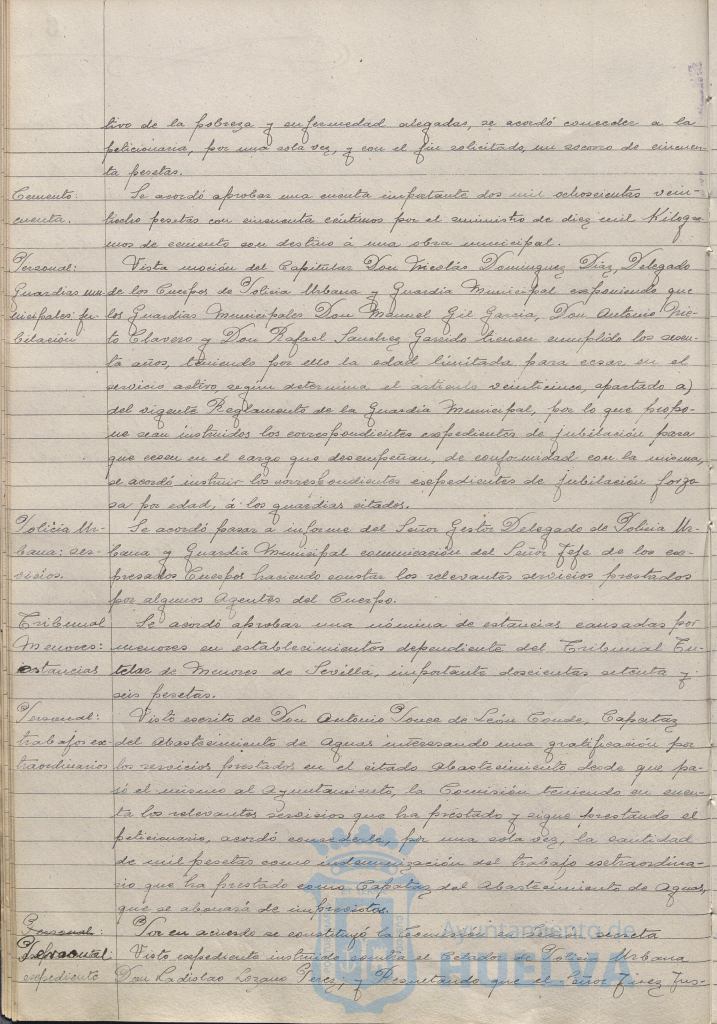 tivo de la pobreza y enfermedad alegadas, se acordó conceder a la
peticionaria, por una sola vez, y con el fin solicitado, un socorro de cincuen-
ta pesetas.
Cemento: Se acordó aprobar una cuenta importante dos mil ochocientas vein-
cuenta. tiocho pesetas con cincuenta céntimos por el suministro de diez mil Kilogra-
mos de cemento con destino á una obra municipal.
Personal: Vista moción del Capitular Don Nicolás Dominguez Diaz, Delegado
Guardias mu- de los Cuerpos de Policia Urbana y Guardia Municipal exponiendo que
nicipales: ju- los Guardias Municipales Don Manuel Gil Garcia, Don Antonio Nie-
bilación to Clavero y Don Rafael Sanchez Garrido tienen cumplido los sesen-
ta años, teniendo por ello la edad limitada para cesar en el
servicio activo, según determina el articulo veinticinco, apartado a)
del vigente Reglamento de la Guardia Municipal, por lo que propo-
ne sean instruidos los correspondientes expedientes de jubilación para
que cesen en el cargo que desempeñan, de conformidad con la misma,
se acordó instruir los correspondientes expedientes de jubilación forzo-
sa por edad, á los guardias citados.
Policia Ur- Se acordó pasar a informe del Señor Gestor Delegado de Policia Ur-
bana: ser- bana y Guardia Municipal comunicación del Señor Jefe de los ex-
vicios. presados Cuerpos haciendo constar los relevantes servicios prestados
por algunos Agentes del Cuerpo.
Tribunal Se acordó aprobar una nómina de estancias causadas por
Menores: menores en establecimientos dependiente del Tribunal Tu-
estancias telar de Menores de Sevilla, importante doscientas setenta y
seis pesetas.
Personal: Visto escrito de Don Antonio Ponce de León Conde, Capataz
trabajos ex- del Abastecimiento de Aguas interesando una gratificación por
traordinarios los servicios prestados en el citado Abastecimiento desde que pa-
só el mismo al Ayuntamiento, la Comisión teniendo en cuen-
ta los relevantes servicios que ha prestado y sigue prestando el
peticionario, acordó concederle, por una sola vez, la cantidad
de mil pesetas como indemnización del trabajo extraordina-
rio que ha prestado como Capataz del Abastecimiento de Aguas,
que se abonará de imprevistos.
Personal: Por en acuerdo se constituyó la Comisión en sesión secreta
Personal: Visto expediente instruido contra el Celador de Policia Urbana
expediente Don Ladislao Lozano Perez, y Resultando que el Señor Juez Ins-
Ayuntamiento de
HUELVA